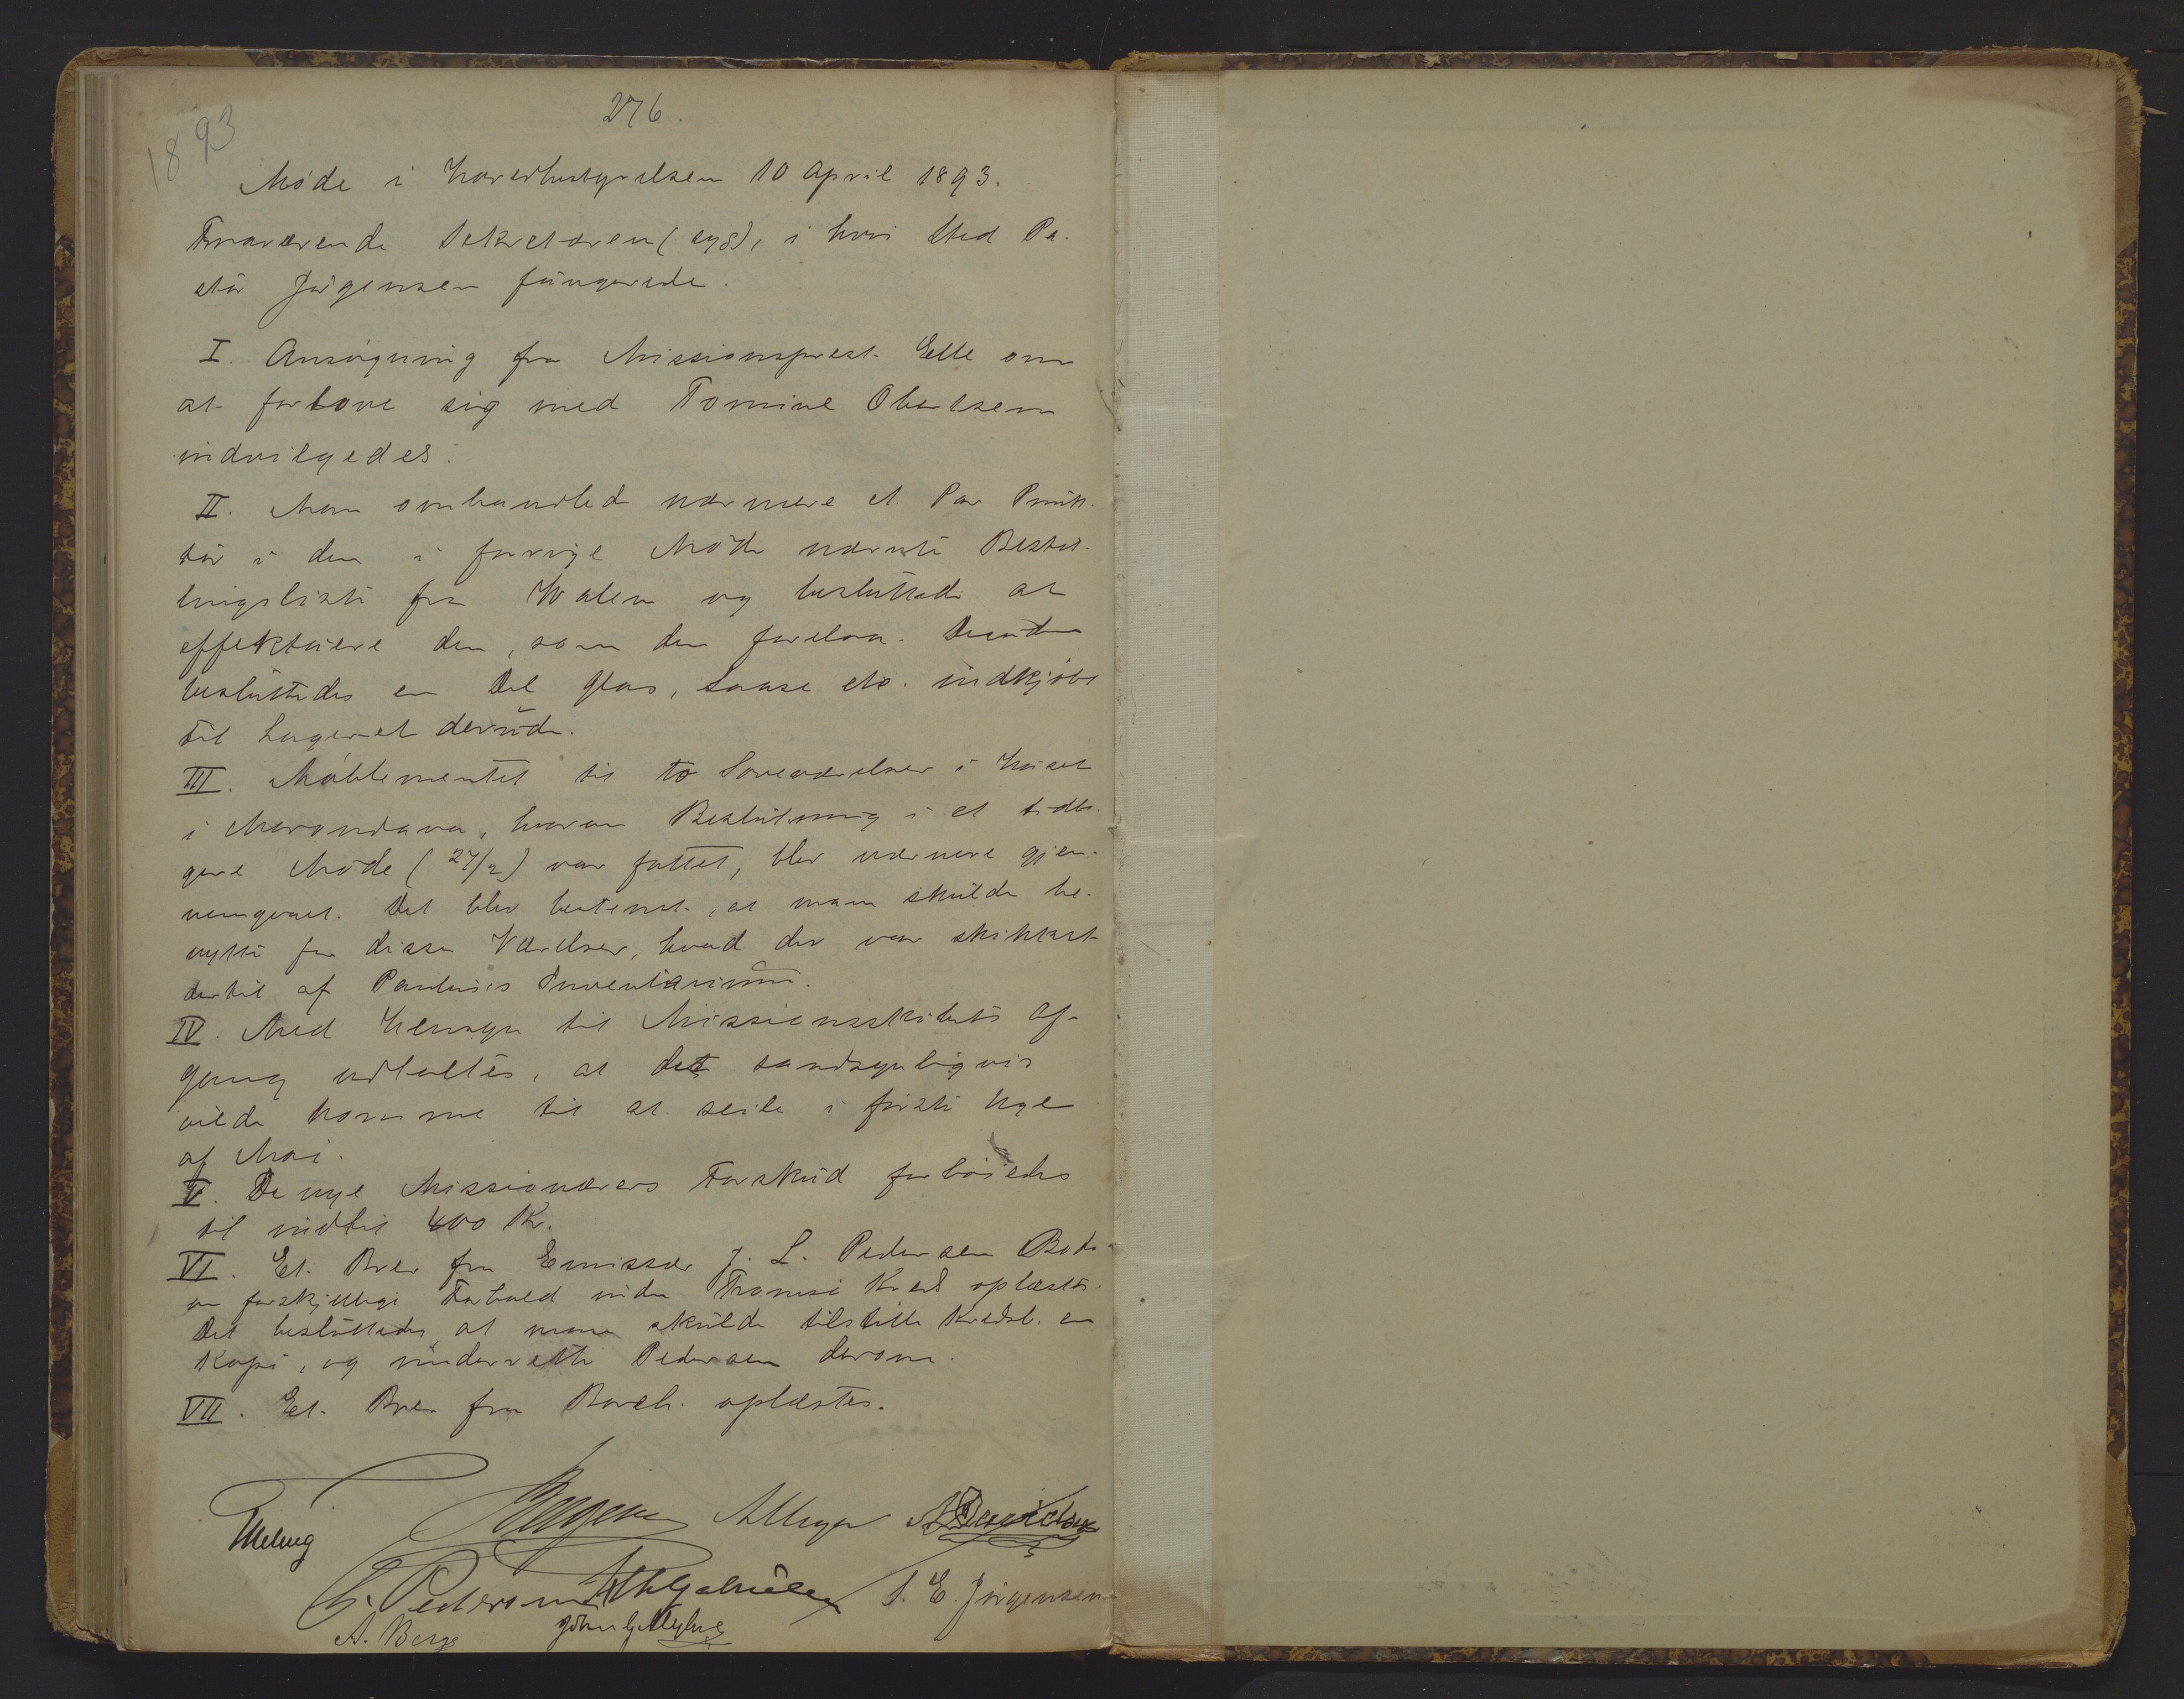 276.
1893
Møde i Hovedbestyrelsen 10 April 1893.
Fraværende Sekretæren (syg), i hvis Sted Pa-
stor Jørgensen fungerede.
I. Ansøgning fra Missionsprest Elle om
at forlove sig med Tomine Obertsen
indvilgedes.
II. Man omhandlede nærmere et Par Punk-
ter i den i forrige Møde nævnte Bestil-
lingsliste fra Walen og besluttede at
effektuere den, som den forelaa. Desuden
besluttedes en Del Glas, Laase etc. indkjøbt
til Lageret derude.
III. Møblementet til to Soveværelser i Huset
i Morondava, hvorom Beslutning i et tidli-
gere Møde (27/2) var fattet, blev nærmere gjen-
nemgaaet. Det blev bestemt, at man skulde be-
nytte for disse Værelser, hvad der var skikket
dertil af Paulus's Inventarium.
IV. Med Hensyn til Missionsskibets Af-
gang udtaltes, at det sandsynligvis
vilde komme til at seile i første Uge
af Mai.
V. De nye Missionærers Forskud forhøiedes
til indtil 400 Kr.
VI. Et Brev fra Emissær J. L. Pedersen Bodø
om forskjellige Forhold inden Tromsø Kreds oplæstes.
Det besluttedes at man skulde tilstille Kredsb. en
Kopi, og underrette Pedersen derom.
VII. Et Brev fra Borch. oplæstes.
Borgen AMeyer
Chr. Pedersen S. E. Jørgensen
A. Berge